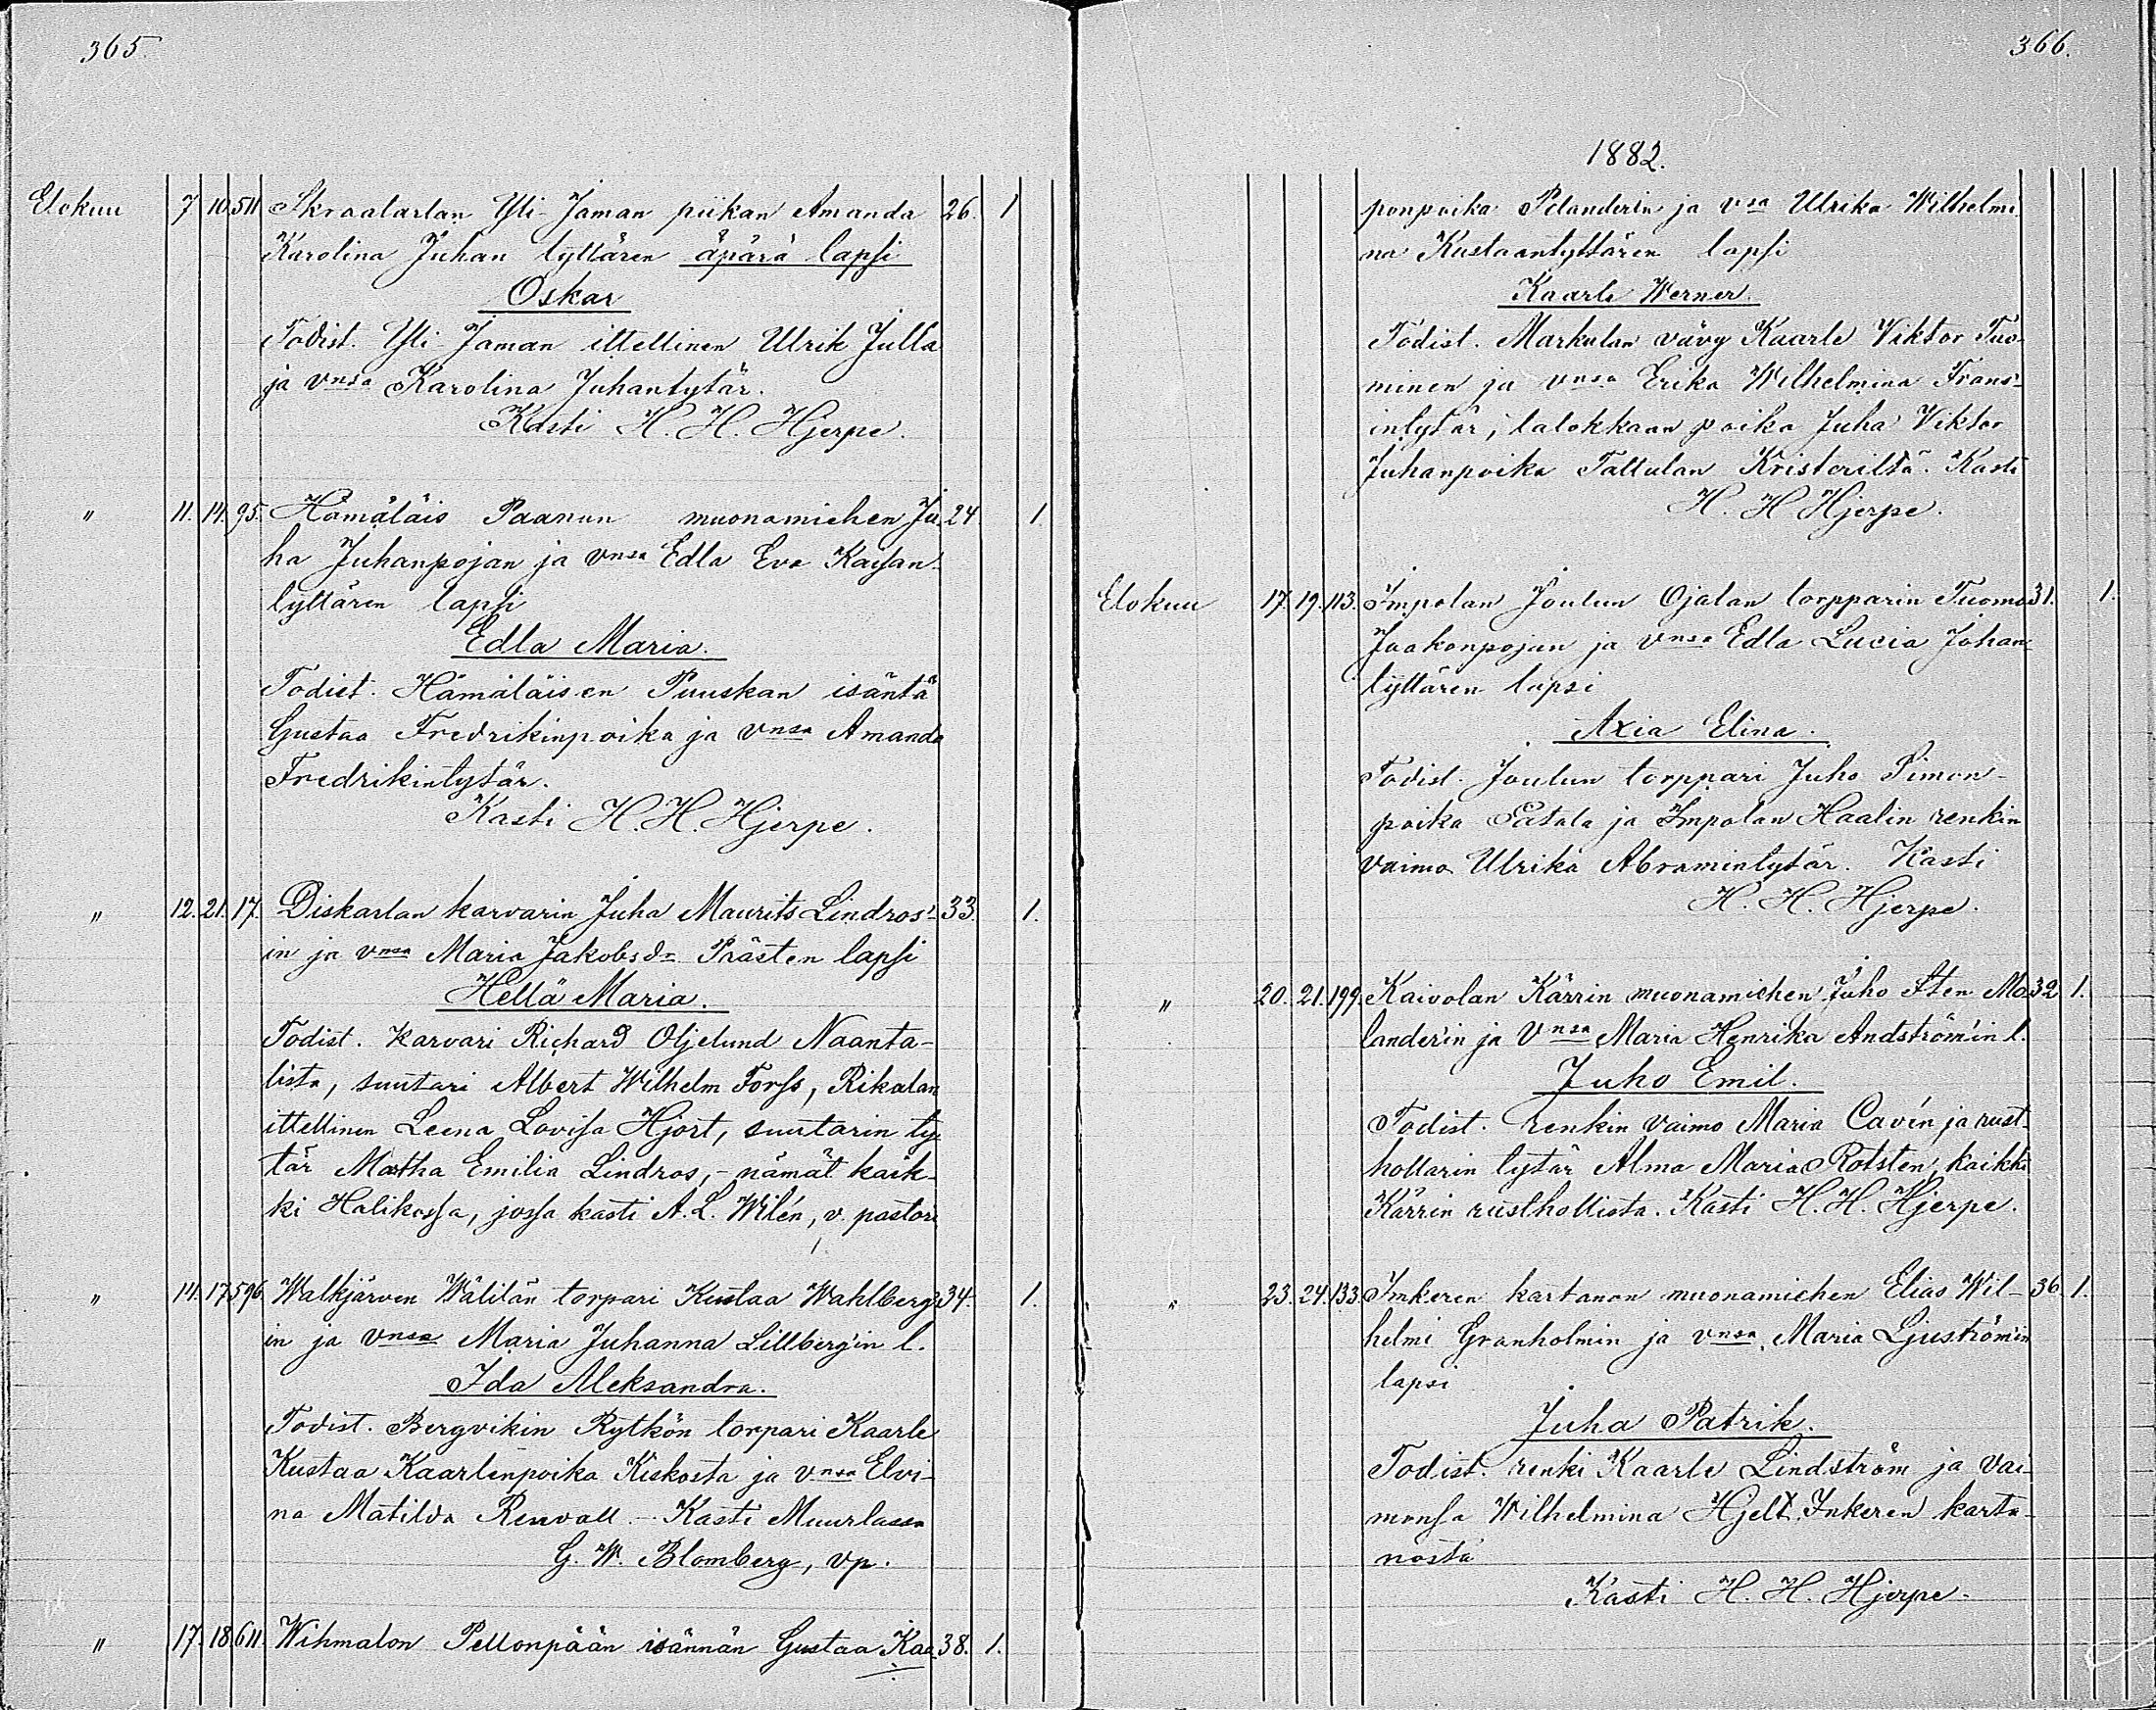 365.
Elokuu 7 10. 511 Skraatarlan Yli-Jaman piikan Amanda 26. 1
Karolina Juhan tyttären äpärä lapsi
Oskar
Todist. Yli Jaman ittellinen Ulrik Julla
ja vnsa Karolina Juhantytär.
Kasti H. H. Hjerpe.
" 11. 14. 95. Hämäläis Paanun muonamiehen Ju- 24. 1.
ha Juhanpojan ja vnsa Edla Eva Kaisan-
tyttären lapsi
Edla Maria.
Todist. Hämäläisen Puuskan isäntä
Gustaa Fredrikinpoika ja vnsa Amanda
Fredrikintytär.
Kasti H. H. Hjerpe.
" 12. 21. 17. Diskarlan karvarin Juha Maurits Lindros'- 33. 1.
in ja vnsa Maria Jakobsdr Prästen lapsi
Hellä Maria.
Todist. Karvari Richard Oljelund Naanta-
lista, suutari Albert Wilhelm Forss, Rikalan
ittellinen Leena Lovisa Hjort, suutarin ty-
tär Martha Emilia Lindros, - nämät kaik-
ki Halikossa, jossa kasti A. L. Wilén, v. pastori
" 14. 17. 596. Walkjärven Wälilän torpari Kustaa Wahlberg- 34. 1.
in ja vnsa Maria Juhanna Lillberg'in l.
Ida Aleksandra.
Todist. Bergvikin Rytkön torpari Kaarle
Kustaa Kaarlenpoika Kiskosta ja vnsa Elvi-
na Matilda Renvall. - Kasti Muurlassa
G. W. Blomberg, vp.
" 17. 18. 611. Wihmalon Pellonpään isännän Gustaa Kaa- 38. 1.
366.
1882.
ponpoika Pelanderin ja vsa Ulrika Wilhelmi-
na Kustaantyttären lapsi
Kaarle Werner.
Todist. Markulan vävy Kaarle Viktor Tuo-
minen ja vnsa Erika Wilhelmina Frans'-
intytär, talokkaan poika Juha Viktor
Juhanpoika Tattulan Kristeriltä. Kasti
H. H Hjerpe.
Elokuu 17. 19. 113. Impolan Joulun Ojalan torpparin Tuomo 31. 1.
Jaakonpojan ja vnsa Edla Lucia Johan-
tyttären lapsi
Axia Elina.
Todist. Joulun torppari Juho Simon-
poika Eatala ja Impolan Haalin renkin
vaimo Ulrika Abramintytär. Kasti
H. H. Hjerpe.
" 20. 21. 199. Kaivolan Kärrin muonamiehen Juho Sten Mo- 32 1.
lander'in ja Vnsa Maria Henrika Andström'in l.
Juho Emil.
Todist. renkin vaimo Maria Cavén ja rust-
hollarin tytär Alma Maria Rotsten, kaikki
Kärrin rusthollista. Kasti H. H. Hjerpe.
" 23. 24. 133. Inkeren kartanon muonamiehen Elias Wil- 36. 1.
helmi Granholmin ja vnsa Maria Ljuström'in
lapsi
Juha Patrik.
Todist. renki Kaarle Lindström ja vai-
monsa Wilhelmina Hjelt Inkeren karta-
nosta
Kasti H. H. Hjerpe.